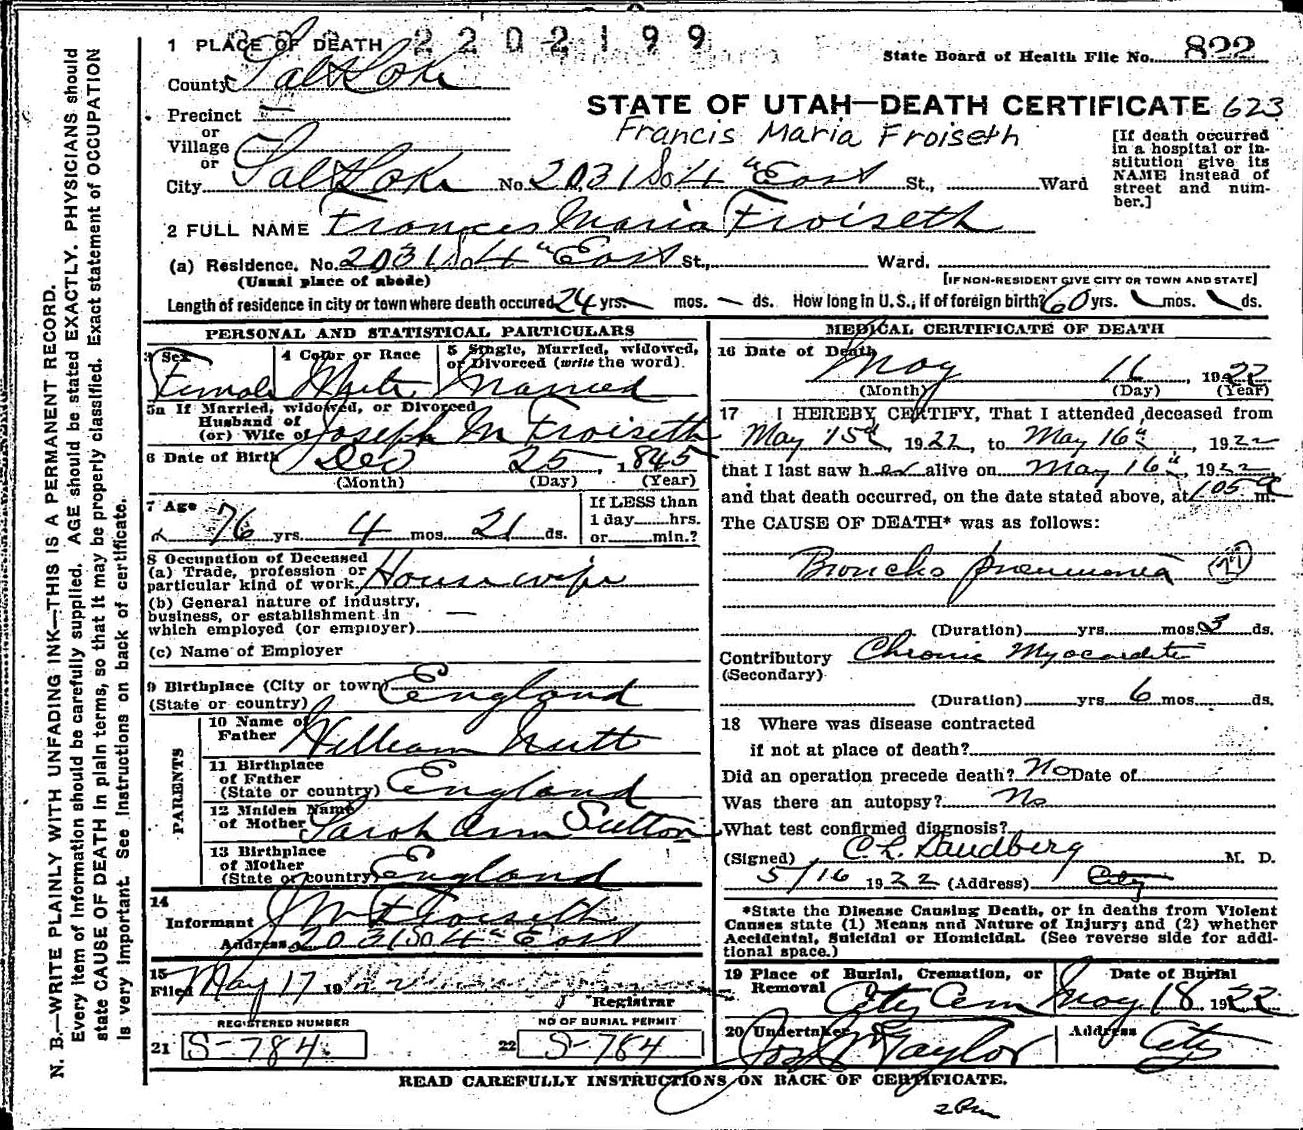 2202199
1 PLACE OF DEATH
State Board of Health File No. 822
County Salt Lake
STATE OF UTAH—DEATH CERTIFICATE 623
Precinct —
Francis Maria Froiseth
or
Village
or
City Salt Lake No. 2031 So 4" East St., Ward
[If death occurred
in a hospital or in-
stitution give its
NAME instead of
street and num-
ber.]
2 FULL NAME Frances Maria Froiseth
(a) Residence. No. 2031 So 4" East St., Ward.
(Usual place of abode)
[IF NON-RESIDENT GIVE CITY OR TOWN AND STATE]
Length of residence in city or town where death occured 24 yrs. — mos. — ds. How long in U. S., if of foreign birth? 60 yrs. mos. ds.
PERSONAL AND STATISTICAL PARTICULARS
3 Sex Female
4 Color or Race White
5 Single, Married, widowed,
or Divorced (write the word).
Married
5a If Married, widowed, or Divorced
Husband of
(or) Wife of Joseph M Froiseth
6 Date of Birth Dec 25, 1845
(Month) (Day) (Year)
7 Age
76 yrs. 4 mos. 21 ds.
If LESS than
1 day hrs.
or min.?
8 Occupation of Deceased
(a) Trade, profession or
particular kind of work. Housewife
(b) General nature of industry,
business, or establishment in —
which employed (or employer)
(c) Name of Employer
9 Birthplace (City or town)
(State or country) England
PARENTS
10 Name of
Father William Nutt
11 Birthplace
of Father
(State or country) England
12 Maiden Name
of Mother Sarah Ann Sutton
13 Birthplace
of Mother
(State or country) England
14
Informant J M Froiseth
Address 2031 So 4" East
15
Filed May 17 19
Registrar
REGISTERED NUMBER
21 S-784
NO OF BURIAL PERMIT
22 S-784
MEDICAL CERTIFICATE OF DEATH
16 Date of Death
May 16, 1922
(Month) (Day) (Year)
17 I HEREBY CERTIFY, That I attended deceased from
May 15", 1922, to May 16", 1922
that I last saw her alive on May 16", 1922
and that death occurred, on the date stated above, at 1.05 a m.
The CAUSE OF DEATH* was as follows:
Broncho pneumonia
(Duration) yrs. mos. 3 ds.
Contributory Chronic Myocarditis
(Secondary)
(Duration) yrs. 6 mos. ds.
18 Where was disease contracted
if not at place of death?
Did an operation precede death? No Date of
Was there an autopsy? No
What test confirmed diagnosis?
(Signed) C. L. Sandberg M. D.
5/16 1922 (Address) City
*State the Disease Causing Death, or in deaths from Violent
Causes state (1) Means and Nature of Injury; and (2) whether
Accidental, Suicidal or Homicidal. (See reverse side for addi-
tional space.)
19 Place of Burial, Cremation, or
Removal City Cem
Date of Burial
May 18 1922
20 Undertaker
Jos Taylor
Address City
READ CAREFULLY INSTRUCTIONS ON BACK OF CERTIFICATE.
2 Pm
N. B.—WRITE PLAINLY WITH UNFADING INK—THIS IS A PERMANENT RECORD.
Every item of information should be carefully supplied. AGE should be stated EXACTLY. PHYSICIANS should
state CAUSE OF DEATH in plain terms, so that it may be properly classified. Exact statement of OCCUPATION
is very important. See Instructions on back of certificate.